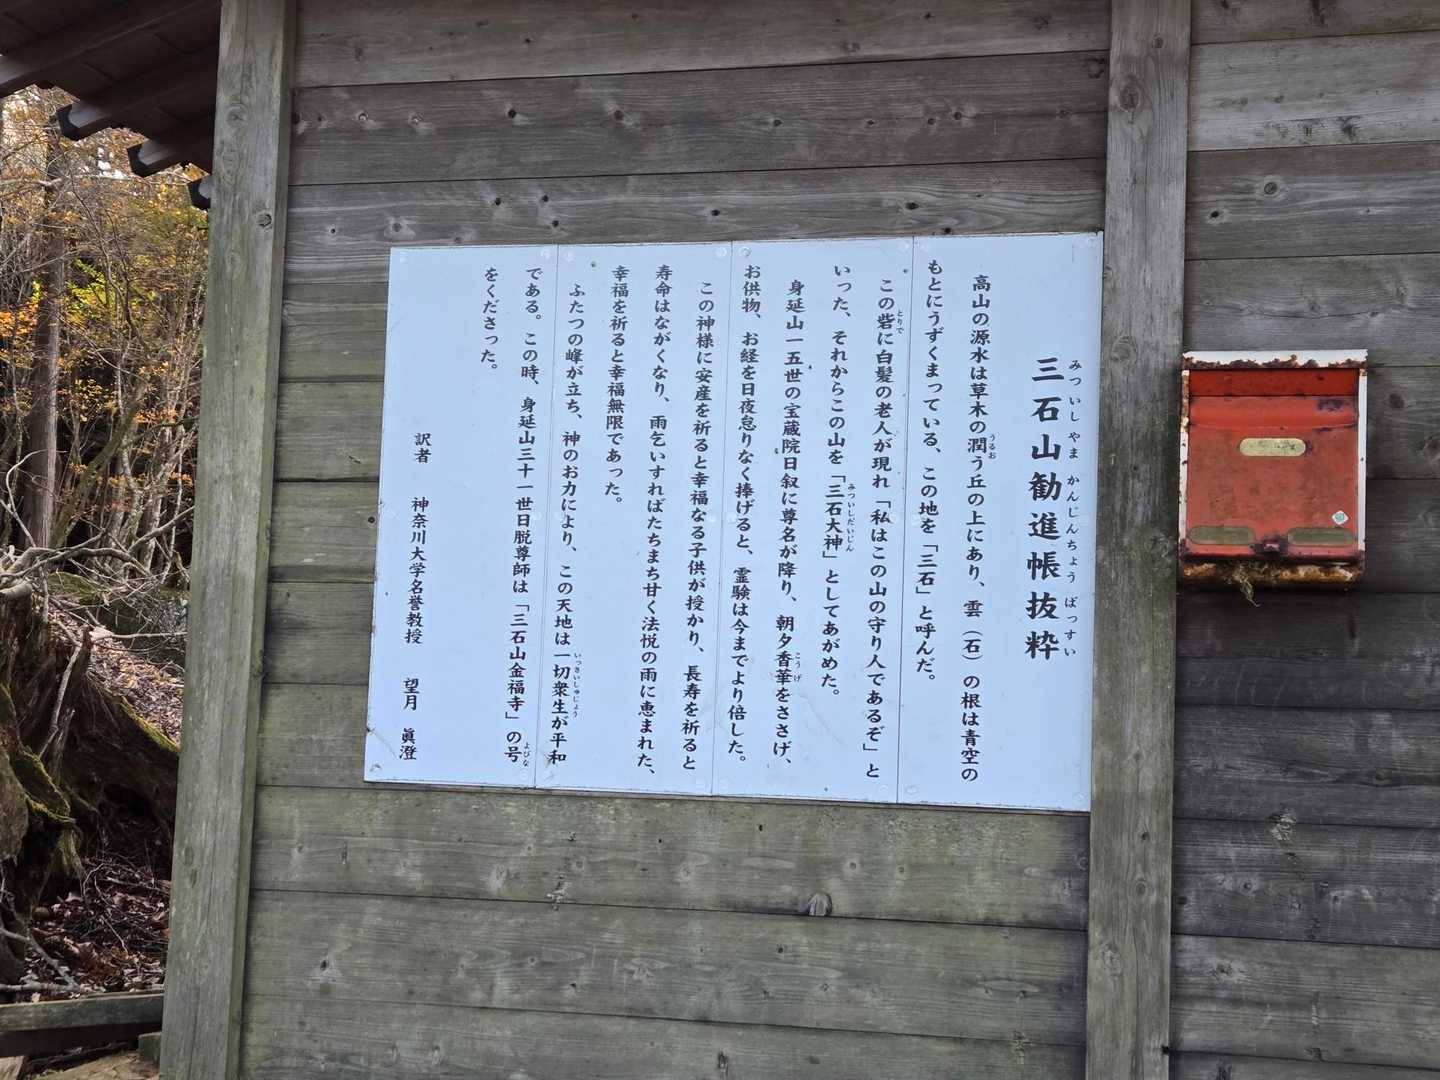 三石山勧進帳抜粋
みついしやまかんじんちょうばっすい
高山の源水は草木の潤う丘の上にあり、雲（石）の根は青空の
うるお
もとにうずくまっている、この地を「三石」と呼んだ。
この砦に白髪の老人が現れ「私はこの山の守り人であるぞ」と
とりで
いった、それからこの山を「三石大神」としてあがめた。
みついしだいじん
身延山一五世の宝蔵院日叙に尊名が降り、朝夕香華をささげ、
こうげ
お供物、お経を日夜怠りなく捧げると、霊験は今までより倍した。
この神様に安産を祈ると幸福なる子供が授かり、長寿を祈ると
寿命はながくなり、雨乞いすればたちまち甘く法悦の雨に恵まれた、
幸福を祈ると幸福無限であった。
ふたつの峰が立ち、神のお力により、この天地は一切衆生が平和
いっさいしゅじょう
である。この時、身延山三十一世日脱尊師は「三石山金福寺」の号
よびな
をくださった。
訳者 神奈川大学名誉教授 望月 眞澄